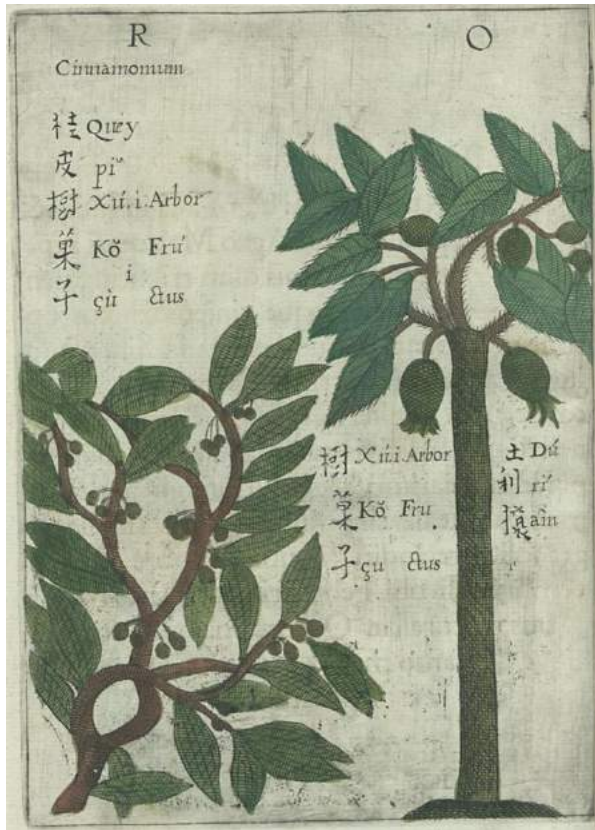 R O
Cinnamomum
桂 Quey
皮 pĭ
樹 Xú.i.Arbor
菓 Kŏ Fru
i
子 çù ctus
樹 Xú.i.Arbor
菓 Kŏ Fru
子 çu ctus
土 Dú
利 rĭ
aîn